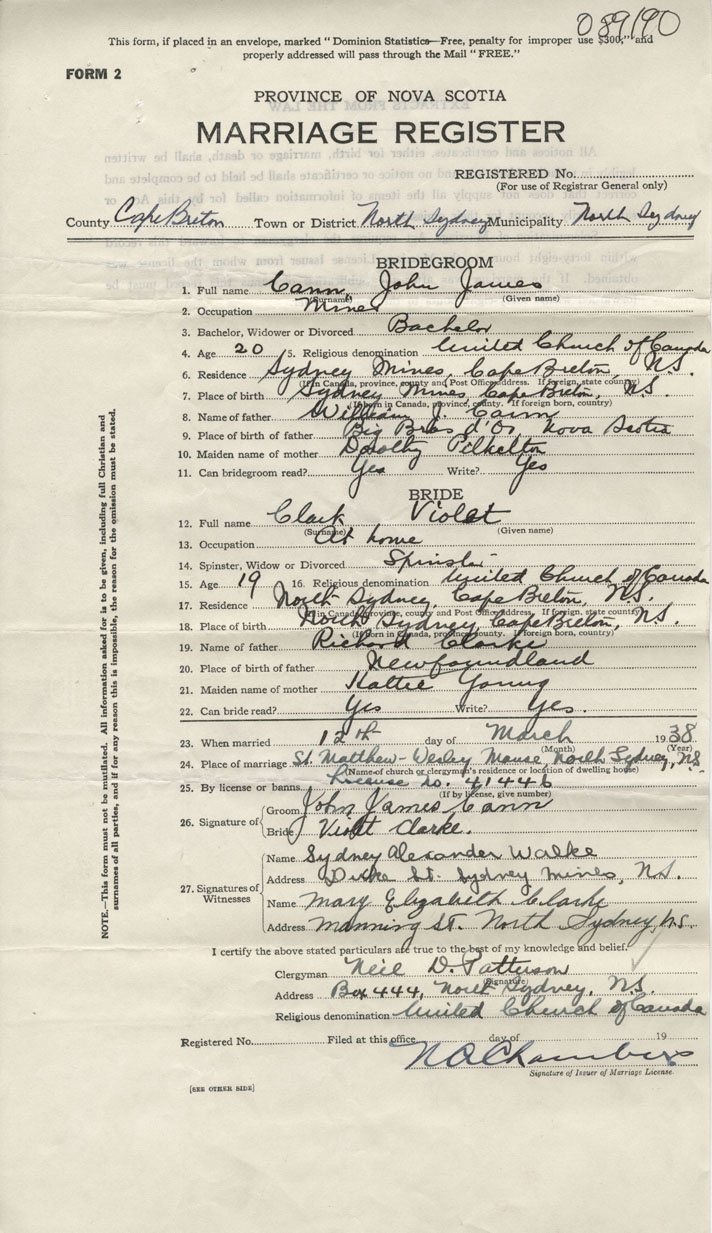 089190
This form, if placed in an envelope, marked "Dominion Statistics—Free, penalty for improper use $300," and
properly addressed will pass through the Mail "FREE."
FORM 2
PROVINCE OF NOVA SCOTIA
MARRIAGE REGISTER
REGISTERED No.
(For use of Registrar General only)
County Cape Breton Town or District North Sydney Municipality North Sydney
BRIDEGROOM
1. Full name Cann, John James
(Surname) (Given name)
2. Occupation Miner
3. Bachelor, Widower or Divorced Bachelor
4. Age 20 5. Religious denomination United Church of Canada
6. Residence Sydney Mines, Cape Breton, N.S.
(If in Canada, province, county and Post Office address. If foreign, state country)
7. Place of birth Sydney Mines, Cape Breton, N.S.
(If born in Canada, province, county. If foreign born, country)
8. Name of father William J. Cann
9. Place of birth of father Big Bras d'Or, Nova Scotia
10. Maiden name of mother Dorothy
11. Can bridegroom read? Yes Write? Yes
BRIDE
12. Full name Clark Violet
(Surname) (Given name)
13. Occupation At home
14. Spinster, Widow or Divorced Spinster
15. Age 19 16. Religious denomination United Church of Canada
17. Residence North Sydney, Cape Breton, N.S.
(If in Canada, province, county and Post Office Address. If foreign, state country)
18. Place of birth North Sydney, Cape Breton, N.S.
(If born in Canada, province, county. If foreign born, country)
19. Name of father Richard Clarke
20. Place of birth of father Newfoundland
21. Maiden name of mother Hattie Young
22. Can bride read? Yes Write? Yes.
23. When married 12th day of March 1938
(Month) (Year)
24. Place of marriage St. Matthew-Wesley Manse, North Sydney, N.S.
(Name of church or clergyman's residence or location of dwelling house)
25. By license or banns License No. 41446
(If by license, give number)
26. Signature of
Groom John James Cann
Bride Violet Clarke.
27. Signatures of Witnesses
Name Sydney Alexander Walke
Address Duke St. Sydney Mines, N.S.
Name Mary Elizabeth Clarke
Address Manning St. North Sydney, N.S.
I certify the above stated particulars are true to the best of my knowledge and belief.
Clergyman Neil D. Patterson
(Signature)
Address Box 444, North Sydney, N.S.
Religious denomination United Church of Canada
Registered No. Filed at this office day of 19
N A Chambers
Signature of Issuer of Marriage License.
[SEE OTHER SIDE]
NOTE.—This form must not be mutilated. All information asked for is to be given, including full Christian and
surnames of all parties, and if for any reason this is impossible, the reason for the omission must be stated.